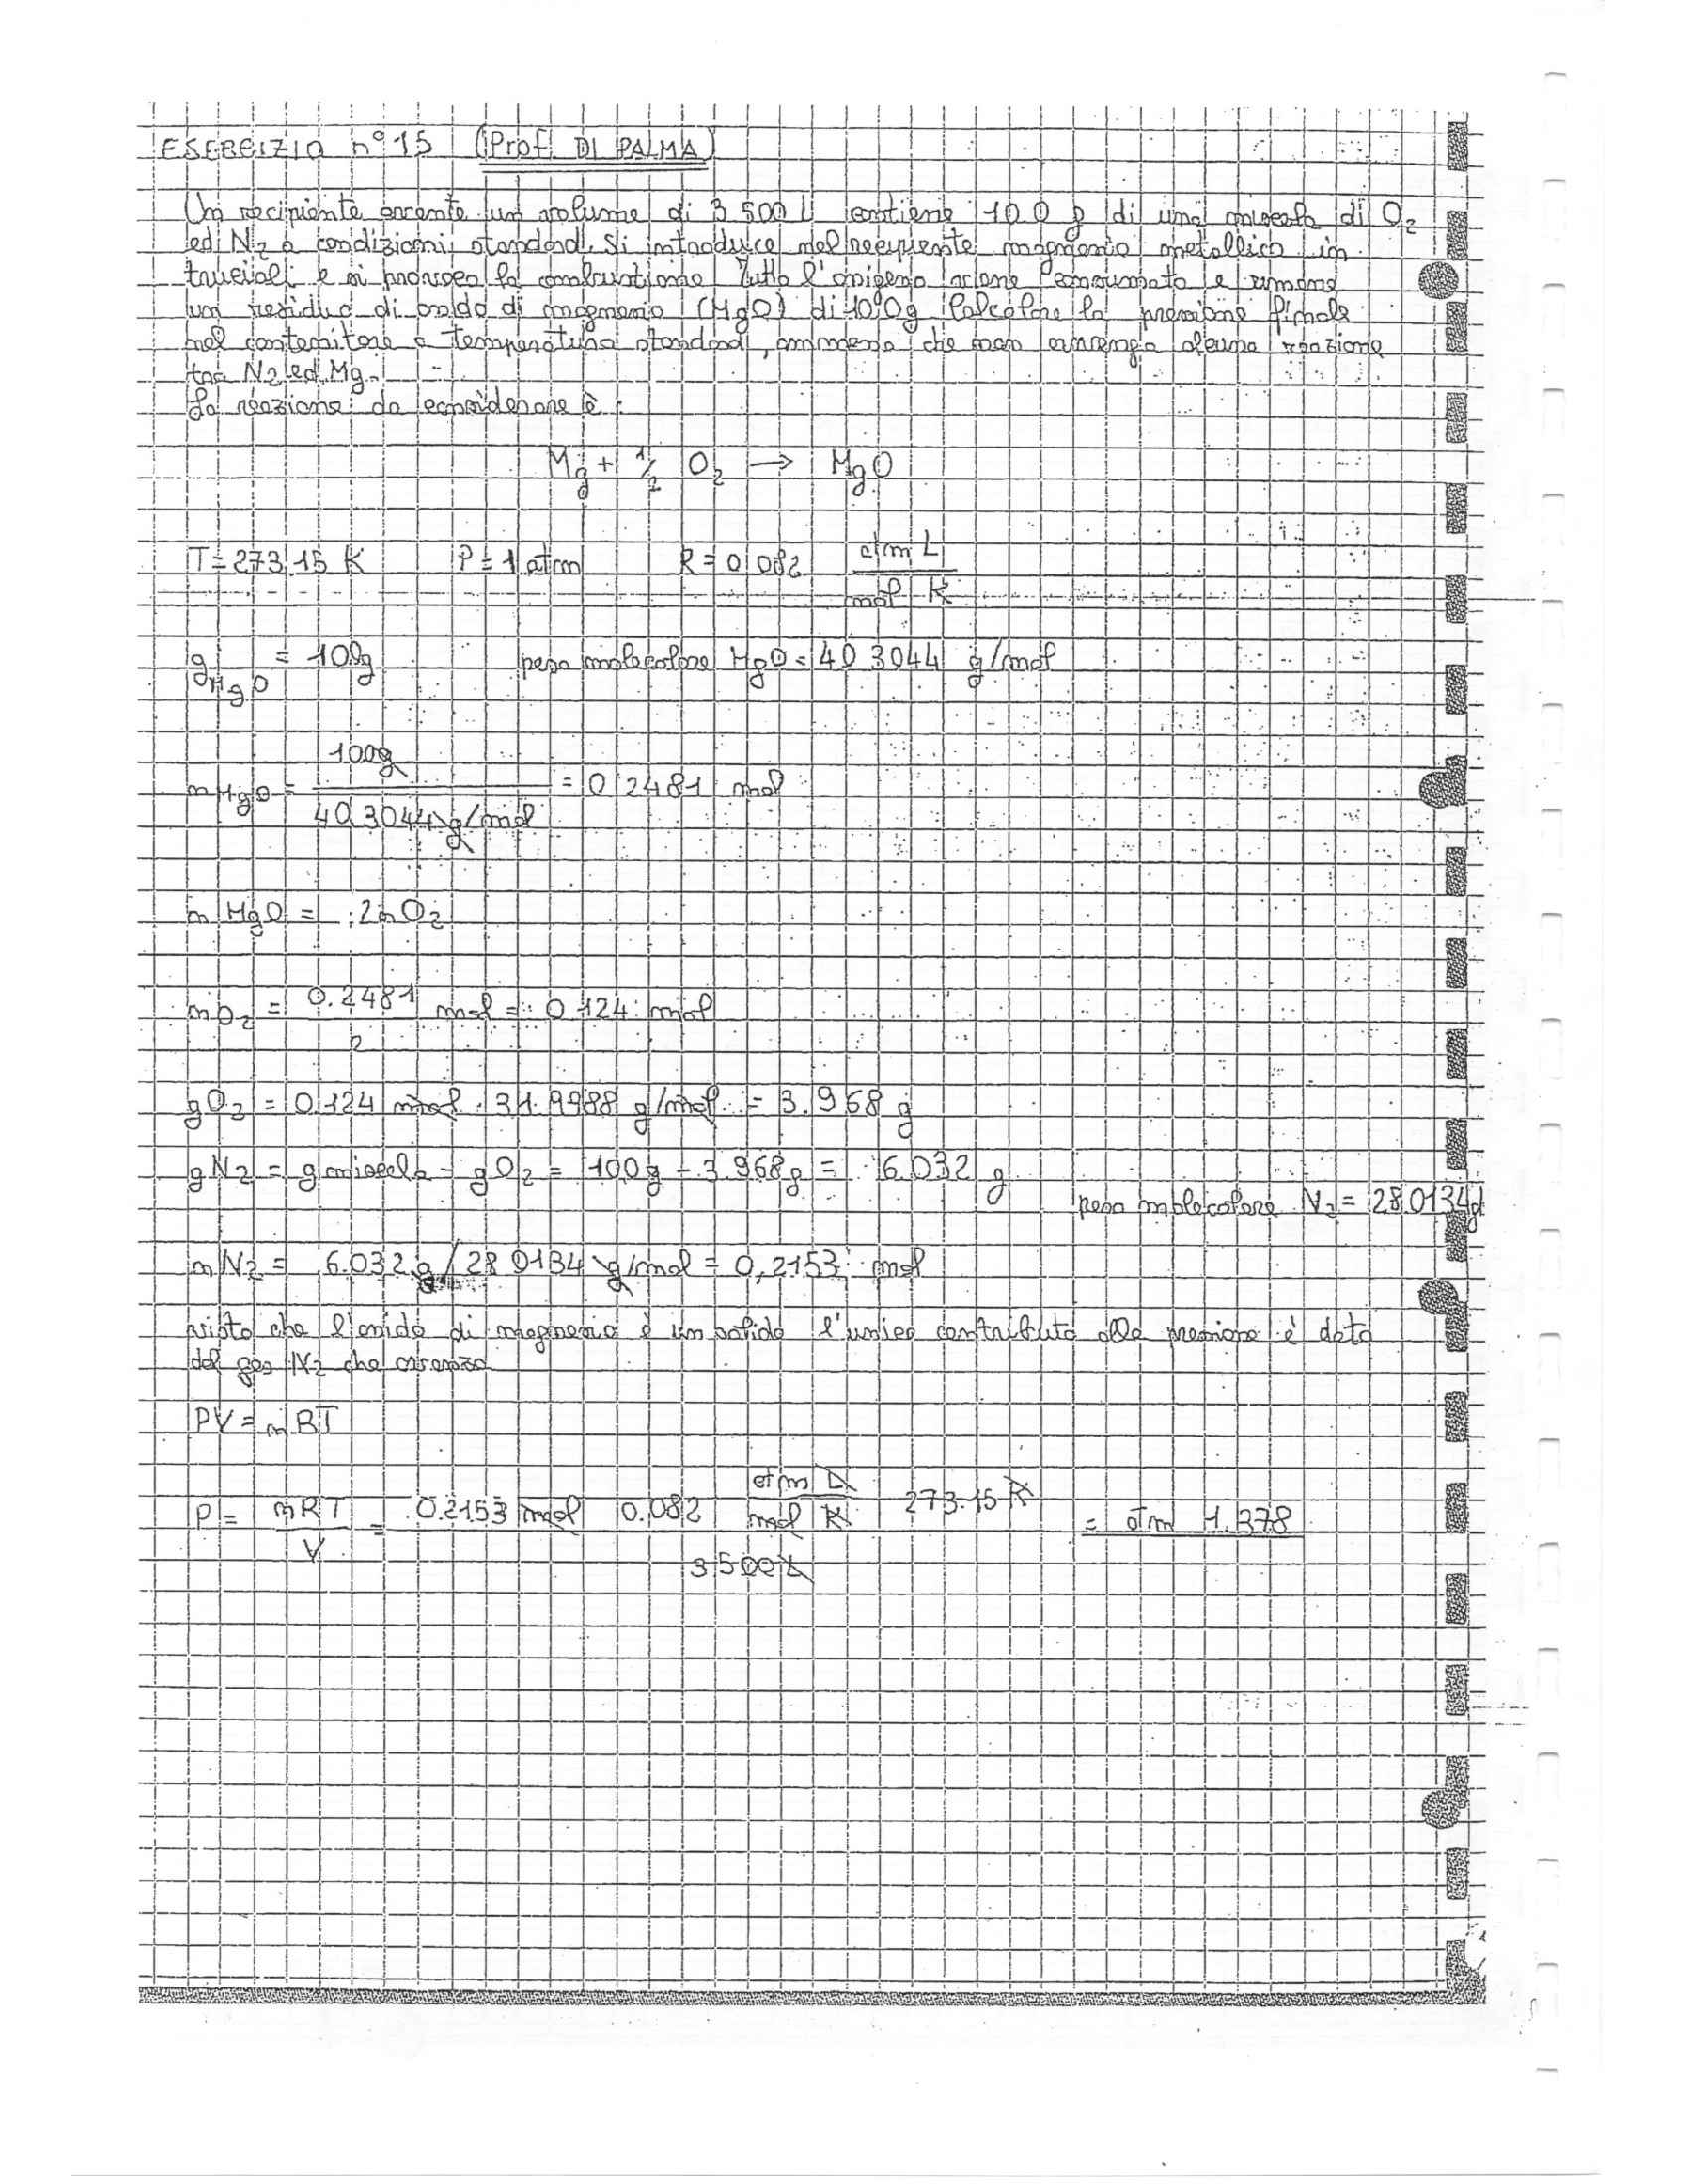 ESERCIZIO n° 15 (Prof. DI PALMA)
Un recipiente avente un volume di 3.500 L contiene 10.0 g di una miscela di O2
ed N2 a condizioni standard. Si introduce nel recipiente magnesio metallico in
trucioli e si provoca la combustione. Tutto l'ossigeno viene consumato e rimane
un residuo di ossido di magnesio (MgO) di 10.0g. Calcolare la pressione finale
nel contenitore a temperatura standard, ammesso che non avvenga alcuna reazione
tra N2 ed Mg.
La reazione da considerare è:
Mg + 1/2 O2 → MgO
T = 273.15 K P = 1 atm R = 0.082 atm L / mol K
gMgO = 10.0g peso molecolare MgO = 40.3044 g/mol
nMgO = 10.0g / 40.3044 g/mol = 0.2481 mol
n MgO = 2nO2
nO2 = 0.2481 / 2 mol = 0.124 mol
gO2 = 0.124 mol · 31.9988 g/mol = 3.968 g
gN2 = g miscela - gO2 = 10.0g - 3.968g = 6.032 g
peso molecolare N2 = 28.0134g
nN2 = 6.032 g / 28.0134 g/mol = 0,2153 mol
visto che l'ossido di magnesio è un solido l'unico contributo alla pressione è dato
dal gas N2 che avanza
PV = nRT
P = nRT / V = 0.2153 mol 0.082 atm L / mol K 273.15 K / 3.500 L = atm 1.378